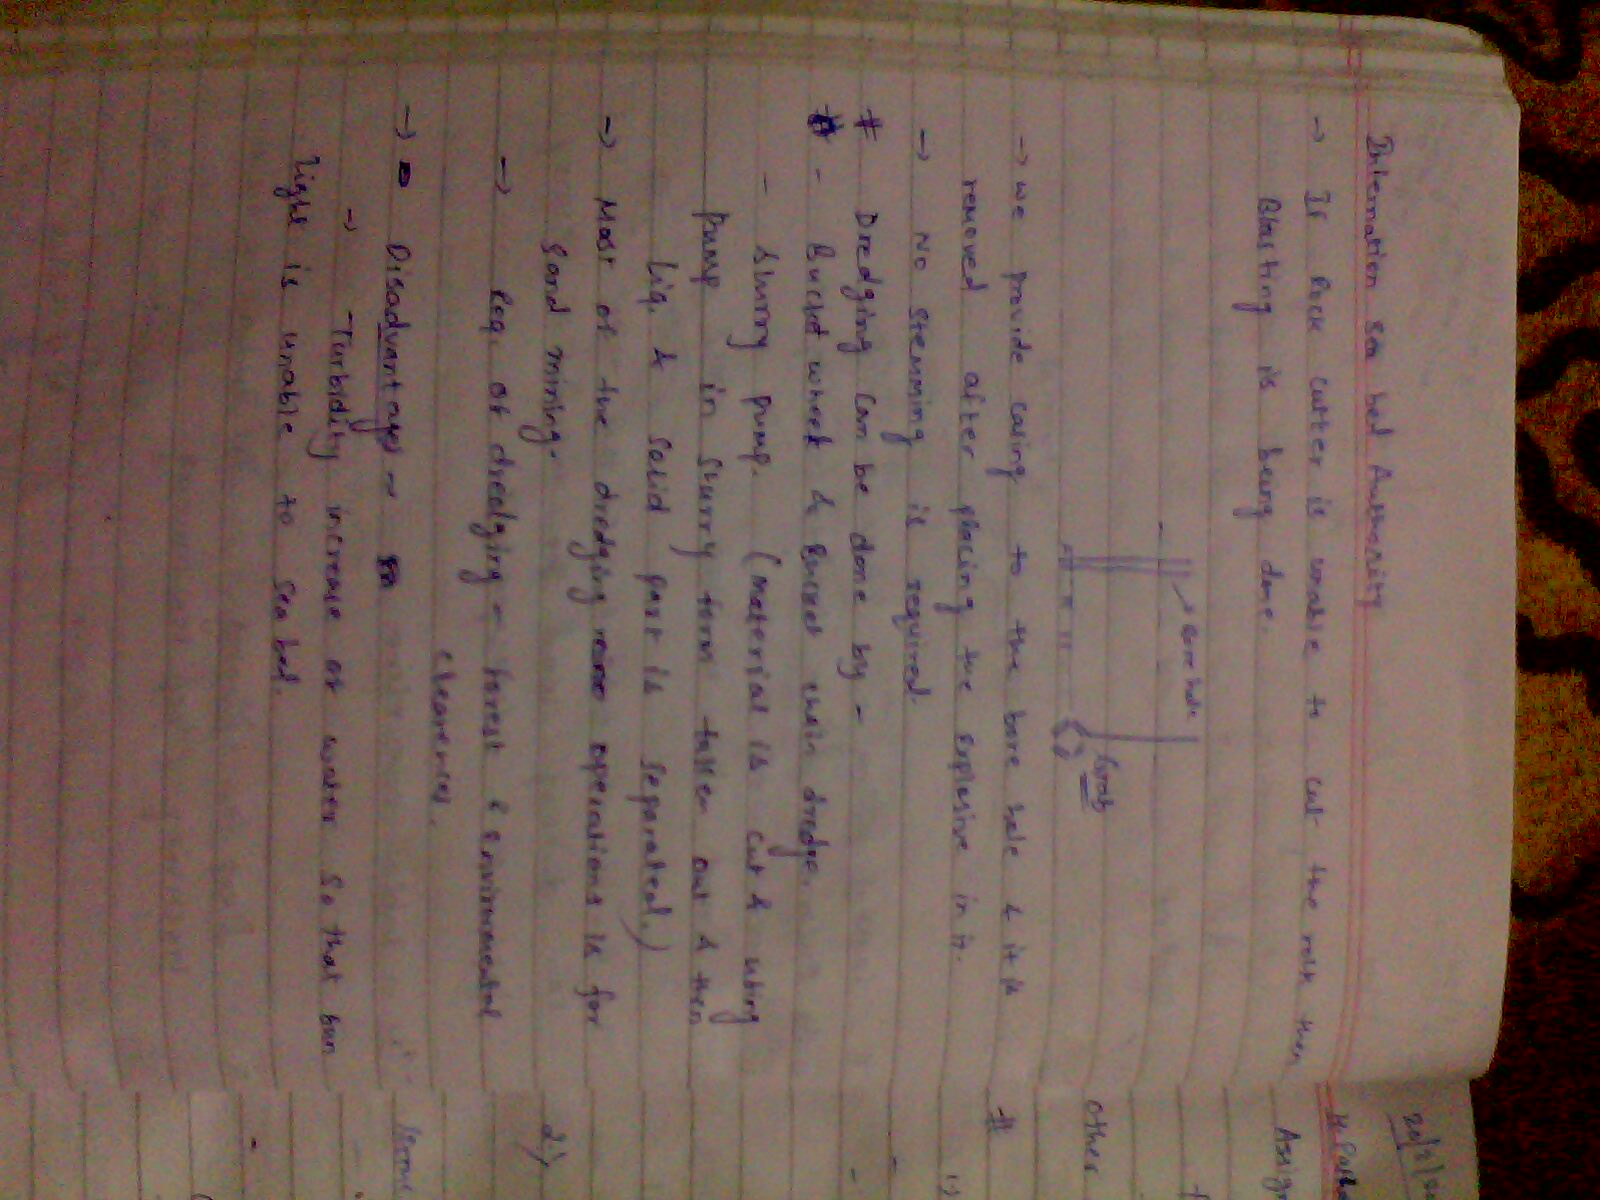 Internation Sea bed Authority
→ If Rock cutter is unable to cut the rock then
Blasting is being done.
Bore hole
Grab
→ we provide casing to the bore hole & it is
removed after placing the explosive in it.
→ No stemming is required.
# Dredging can be done by -
- Bucket wheel & Bucket chain dredge.
- Slurry pump. (material is cut & using
pump in slurry form taken out & then
Liq. & solid part is separated.)
→ Most of the dredging operations is for
Sand mining.
→ Req. of dredging - forest & Enviromental
clearences.
→ Disadvantages →
→ Turbidity increase of water so that sun
light is unable to sea bed.
Other
#
1)
2)